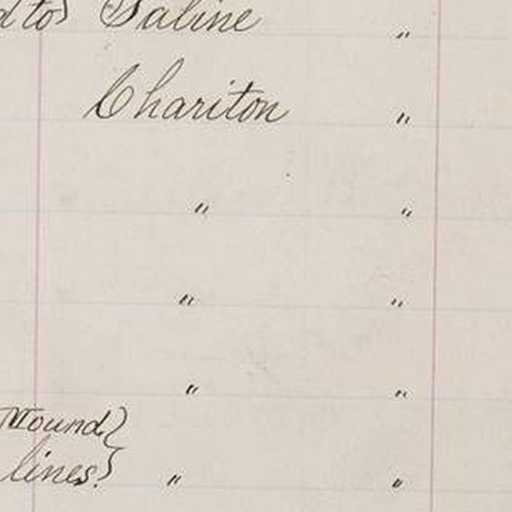 d to} Saline "
Chariton "
" "
" "
" "
Mound}
lines.} " "